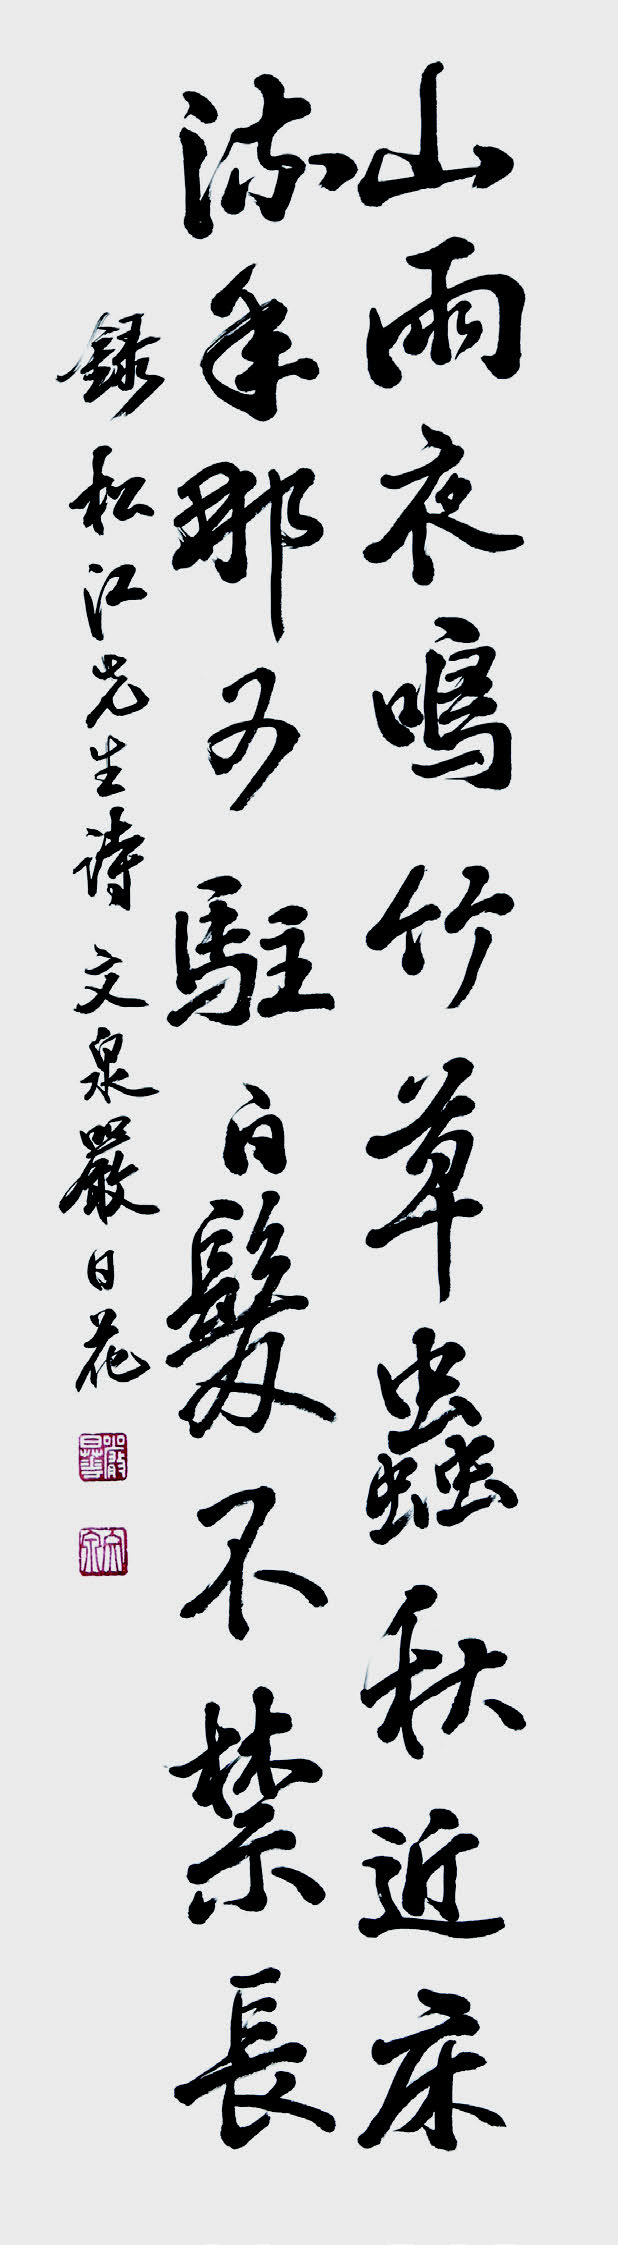 山雨夜鳴竹草蟲秋近床
流年那可駐白髮不禁長
録松江先生詩 文泉嚴日花